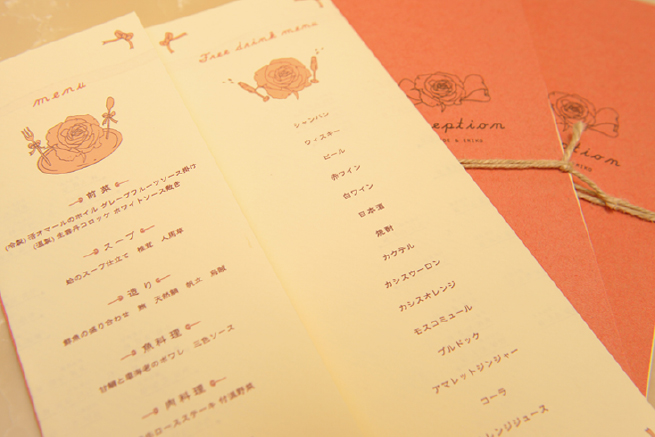 menu
前菜
(冷製)活オマールのポイル グレープフルーツソース掛け
(温製)生雲丹コロッケ ホワイトソース敷き
スープ
蛤のスープ仕立て 椎茸 人馬草
造り
鮮魚の盛り合わせ 鮪 天然鯛 帆立 烏賊
魚料理
甘鯛と車海老のポワレ 三色ソース
肉料理
ロースステーキ 付添野菜
Free drink menu
シャンパン
ウィスキー
ビール
赤ワイン
白ワイン
日本酒
焼酎
カクテル
カシスウーロン
カシスオレンジ
モスコミュール
ブルドック
アマレットジンジャー
コーラ
レンジジュース
eption
& DRINK
ption
DRINK